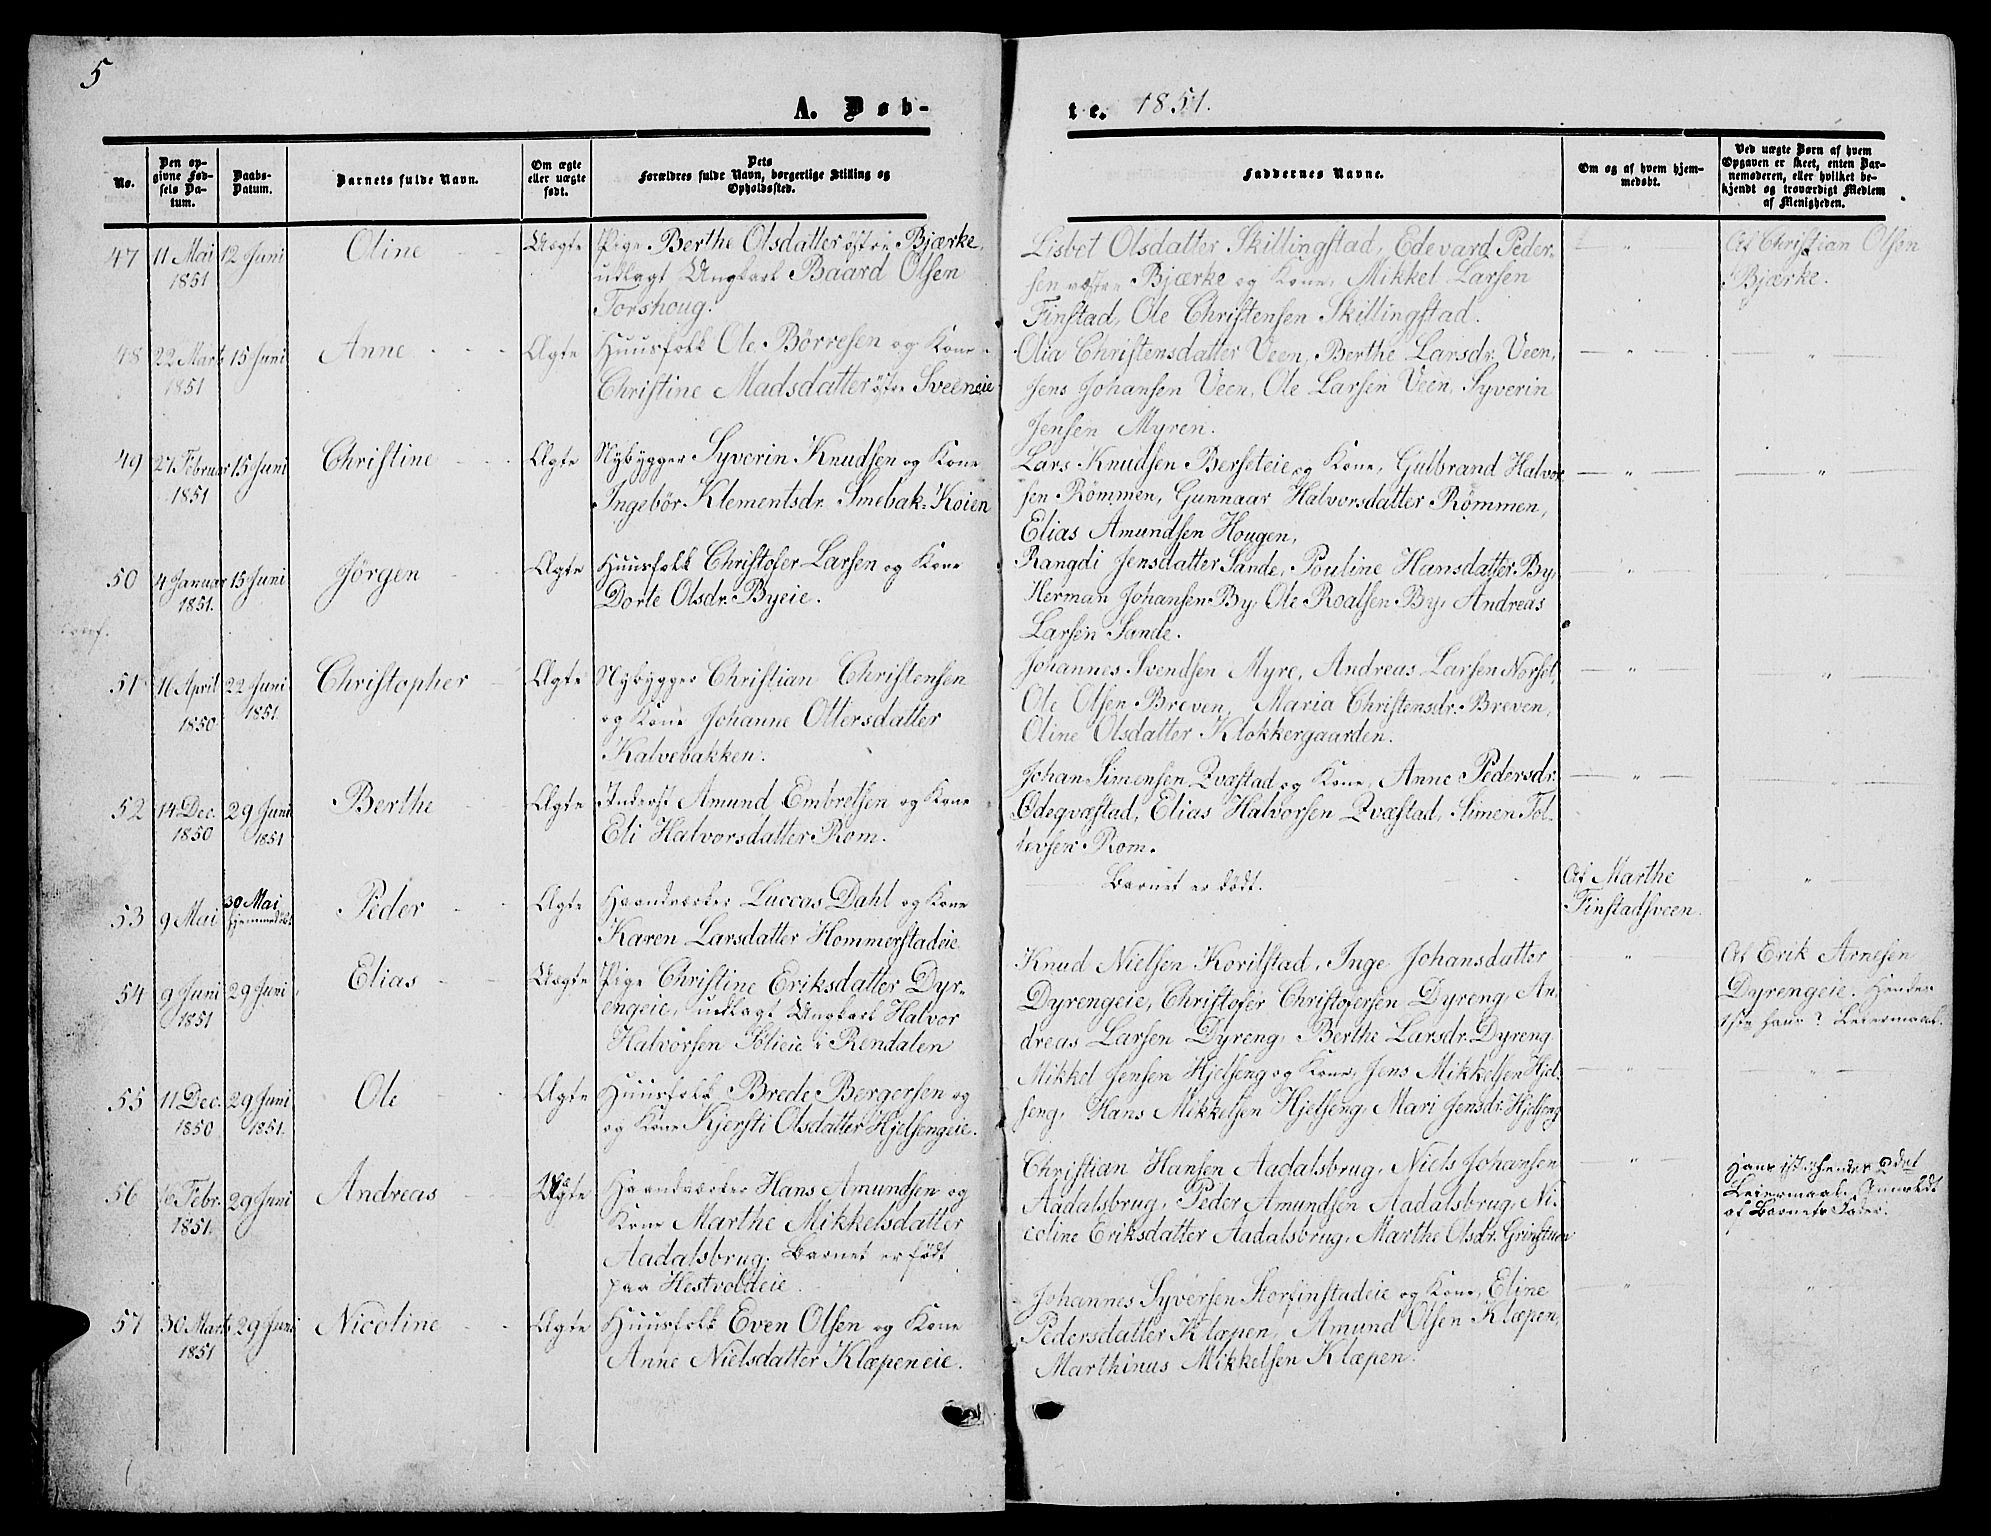 5
A. Døb-
te. 1851.
No.
Den op-
givne Fød-
sels Da-
tum.
Daabs-
Datum.
Barnets fulde Navn.
Om ægte
eller uægte
født.
Dets
Forældres fulde Navn, borgerlige Stilling og
Opholdssted.
Faddernes Navne.
Om og af hvem hjem-
medøbt.
Ved uægte Børn af hvem
Opgaven er skeet, enten Bar-
nemoderen, eller hvilket be-
kjendt og troværdigt Medlem
af Menigheden.
47 11 Mai 1851 12 Juni Oline Uægte
Pige Berthe Olsdatter østre Bjærke,
udlagt Ungkarl Baard Olsen
Torshoug.
Lisbet Olsdatter Skillingstad, Edevard Peder-
sen østre Bjærke og Kone, Mikkel Larsen
Finstad, Ole Christensen Skillingstad.
Af Christian Olsen
Bjærke.
48 22 Marts 1851 15 Juni Anne Ægte
Huusfolk Ole Børresen og Kone
Christine Madsdatter østre Sveeneie
Olia Christensdatter Veen, Berthe Larsdr. Veen,
Jens Johansen Veen, Ole Larsen Veen, Syverin
Jensen Myren.
49 27 Februar 1851 15 Juni Christine Ægte
Nybygger Syverin Knudsen og Kone
Ingebör Klementsdr. Smebak-Koien
Lars Knudsen Berseteie og Kone, Gulbrand Halvor-
sen Römmen, Gunnaar Halvorsdatter Römmen,
Elias Amundsen Hougen,
50 4 Januar 1851. 15 Juni Jörgen Ægte
Huusfolk Christofer Larsen og Kone
Dorte Olsdr. Byeie.
Rangdi Jensdatter Sande, Pouline Hansdatter By,
Herman Johansen By, Ole Roalsen By, Andreas
Larsen Sande.
conf.
51 16 April 1850 22 Juni 1851 Christopher Ægte
Nybygger Christian Christensen
og Kone Johanne Ottersdatter
Kalvebakken.
Johannes Svendsen Myre, Andreas Larsen Norset,
Ole Olsen Breven, Maria Christensdr. Breven,
Oline Olsdatter Klokkergaarden.
52 14 Dec. 1850 29 Juni 1851 Berthe Ægte
Inderst Amund Embretsen og Kone
Eli Halvorsdatter Rom.
Johan Simensen Qvæstad og Kone, Anne Pedersdr.
Ödeqvæstad, Elias Halvorsen Qvæstad, Simen Tol-
levsen Rom.
53 9 Mai 30 Mai hjemmedöbt Peder Ægte
Haandværker Luccas Dahl og Kone
Karen Larsdatter Hommerstadeie
Barnet er dödt.
Af Marthe
Finstadsveen.
54 9 Juni 1851 29 Juni Elias Uægte
Pige Christine Eriksdatter Dyr-
engeie, udlagt Ungkarl Halvor
Halvorsen Sölieie i Rendalen
Knud Nielsen Korilstad, Inge Johansdatter
Dyrengeie, Christofer Christofersen Dyreng, An-
dreas Larsen Dyreng, Berthe Larsdr. Dyreng
Af Erik Arnesen
Dyrengeie. Hendes
1ste hans ? Leiermaal.
55 11 Dec. 1850 29 Juni 1851. Ole Ægte
Huusfolk Brede Bergersen og
og Kone Kjersti Olsdatter Hjelsengeie.
Mikkel Jensen Hjelseng og Kone, Jens Mikkelsen Hjel-
seng, Hans Mikkelsen Hjelseng, Mari Jensdr. Hjelseng
56 Febr. 1851. 29 Juni Andreas Uægte
Haandværker Hans Amundsen og
Kone Marthe Mikkelsdatter
Aadalsbrug. Barnet er födt
paa Hestvoldeie.
Christian Hansen Aadalsbrug, Niels Johansen
Aadalsbrug, Peder Amundsen Aadalsbrug, Ni-
coline Eriksdatter Aadalsbrug, Marthe Olsdr. Grinstuen
Hans 1st hendes 2det
Leiermaal. Anmeldt
af Barnets Fader.
57 30 Marts 1851 29 Juni Nicoline Ægte
Huusfolk Even Olsen og Kone
Anne Nielsdatter Klæpeneie.
Johannes Syversen Storfinstadeie og Kone, Eline
Pedersdatter Klæpen, Amund Olsen Klæpen,
Marthinus Mikkelsen Klæpen.